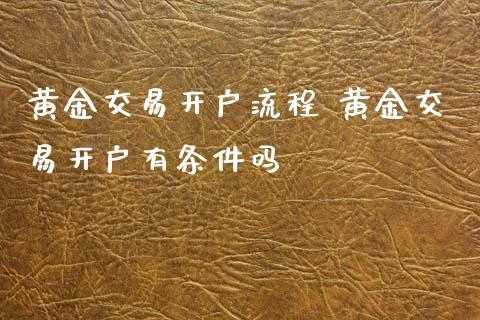 黄金交易开户流程 黄金交
易开户有条件吗